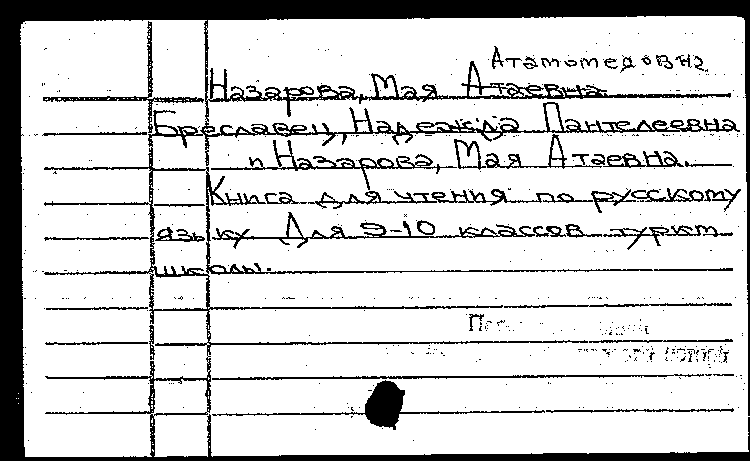 Атамомедовна
Назарова, Мая Атаевна
Бреславец, Надежда Пантелеевна
и Назарова, Мая Атаевна.
Книга для чтения по русскому
языку Для 9-10 классов туркм
школы.